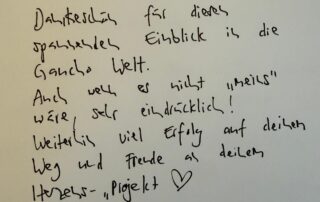 Dankeschön für diesen
spannenden Einblick in die
Gaucho Welt.
Auch wenn es nicht „meins"
wäre, sehr eindrücklich!
Weiterhin viel Erfolg auf deinem
Weg und Freude an deinem
Herzens-„Projekt ♡